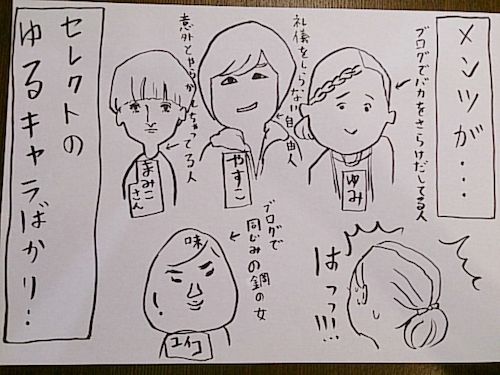 メンツが…
ブログでバカをさらけだしてる人
ゆみ
礼儀をしらない自由人
やすこ
意外とやらかしちゃってる人
まみこ
さん
セレクトの
ゆるキャラばかり…
はっっ!!!
ブログで
同じみの鋼の女
味
ユイコ